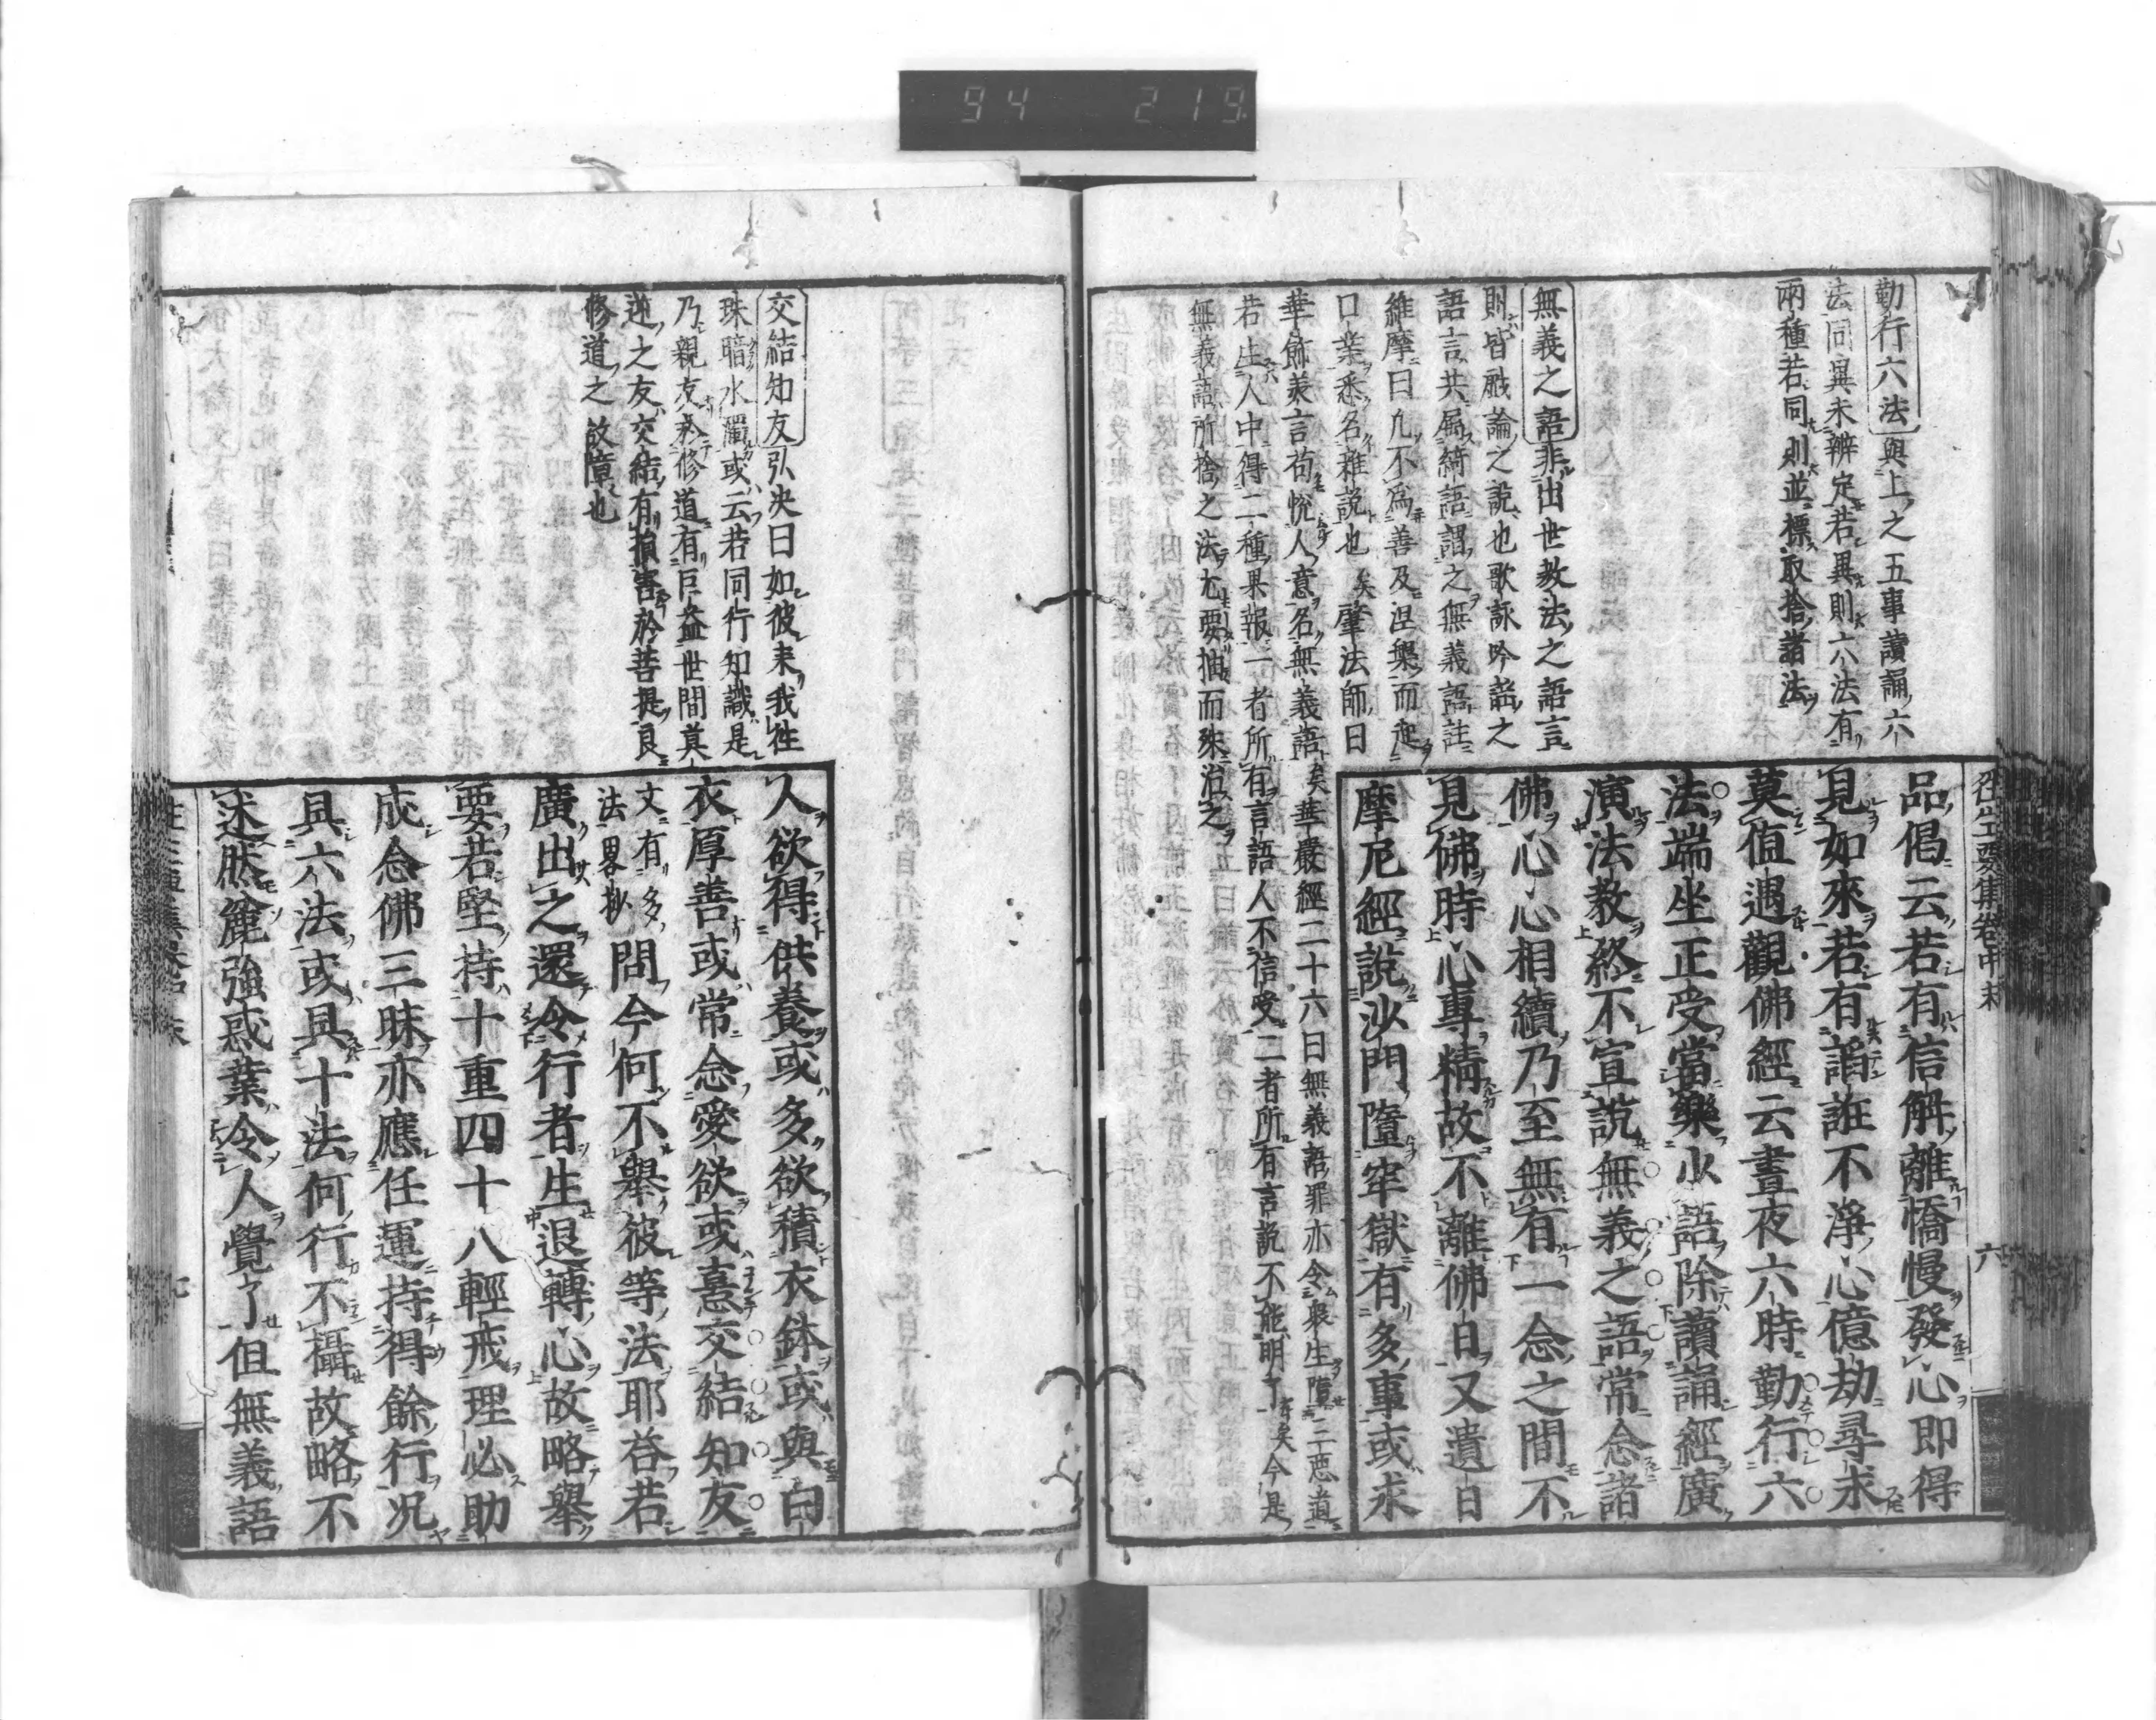 94 219
勤行六法與上之五事讀誦六
法同異未辨定若異則六法有
兩種若同則並標取捨諸法
無義之語非出世教法之語言
則皆戲論之說也歌詠吟謡之
語言共屬綺語謂之無義語註
維摩曰凡不爲善及涅槃而起
口業悉名雜說也矣肇法師曰
華飾美言苟悅人意名無義語矣華嚴經二十六曰無義語罪亦令衆生墮三惡道
若生人中得二種果報一者所有言語人不信受二者所有言說不能明了矣今是
無義語所捨之法尤要抽而殊治之
往生要集卷中末 六
品偈云若有信解離憍慢發心即得
見如來若有謟誑不淨心億劫尋求
莫值遇觀佛經云晝夜六時勤行六
法端坐正受當樂少語除讀誦經廣
演法教終不宣說無義之語常念諸
佛心心相續乃至無有一念之間不
見佛時心專精故不離佛日又遺日
摩尼經說沙門墮牢獄有多事或求
交結知友弘决曰如彼未我往
珠暗水濁或云若同行知識是
乃親友於修道有巨益世間莫
逆之友交結有損害於菩提良
修道之故障也
人欲得供養或多欲積衣鉢或與白
衣厚善或常念愛欲或憙交結知友
文有多
法畧抄
問今何不擧彼等法耶答若
廣出之還令行者生退轉心故略擧
要若堅持十重四十八輕戒理必助
成念佛三昧亦應任運持得餘行况
具六法或具十法何行不攝故略不
述然麁強惑業令人覺了但無義語